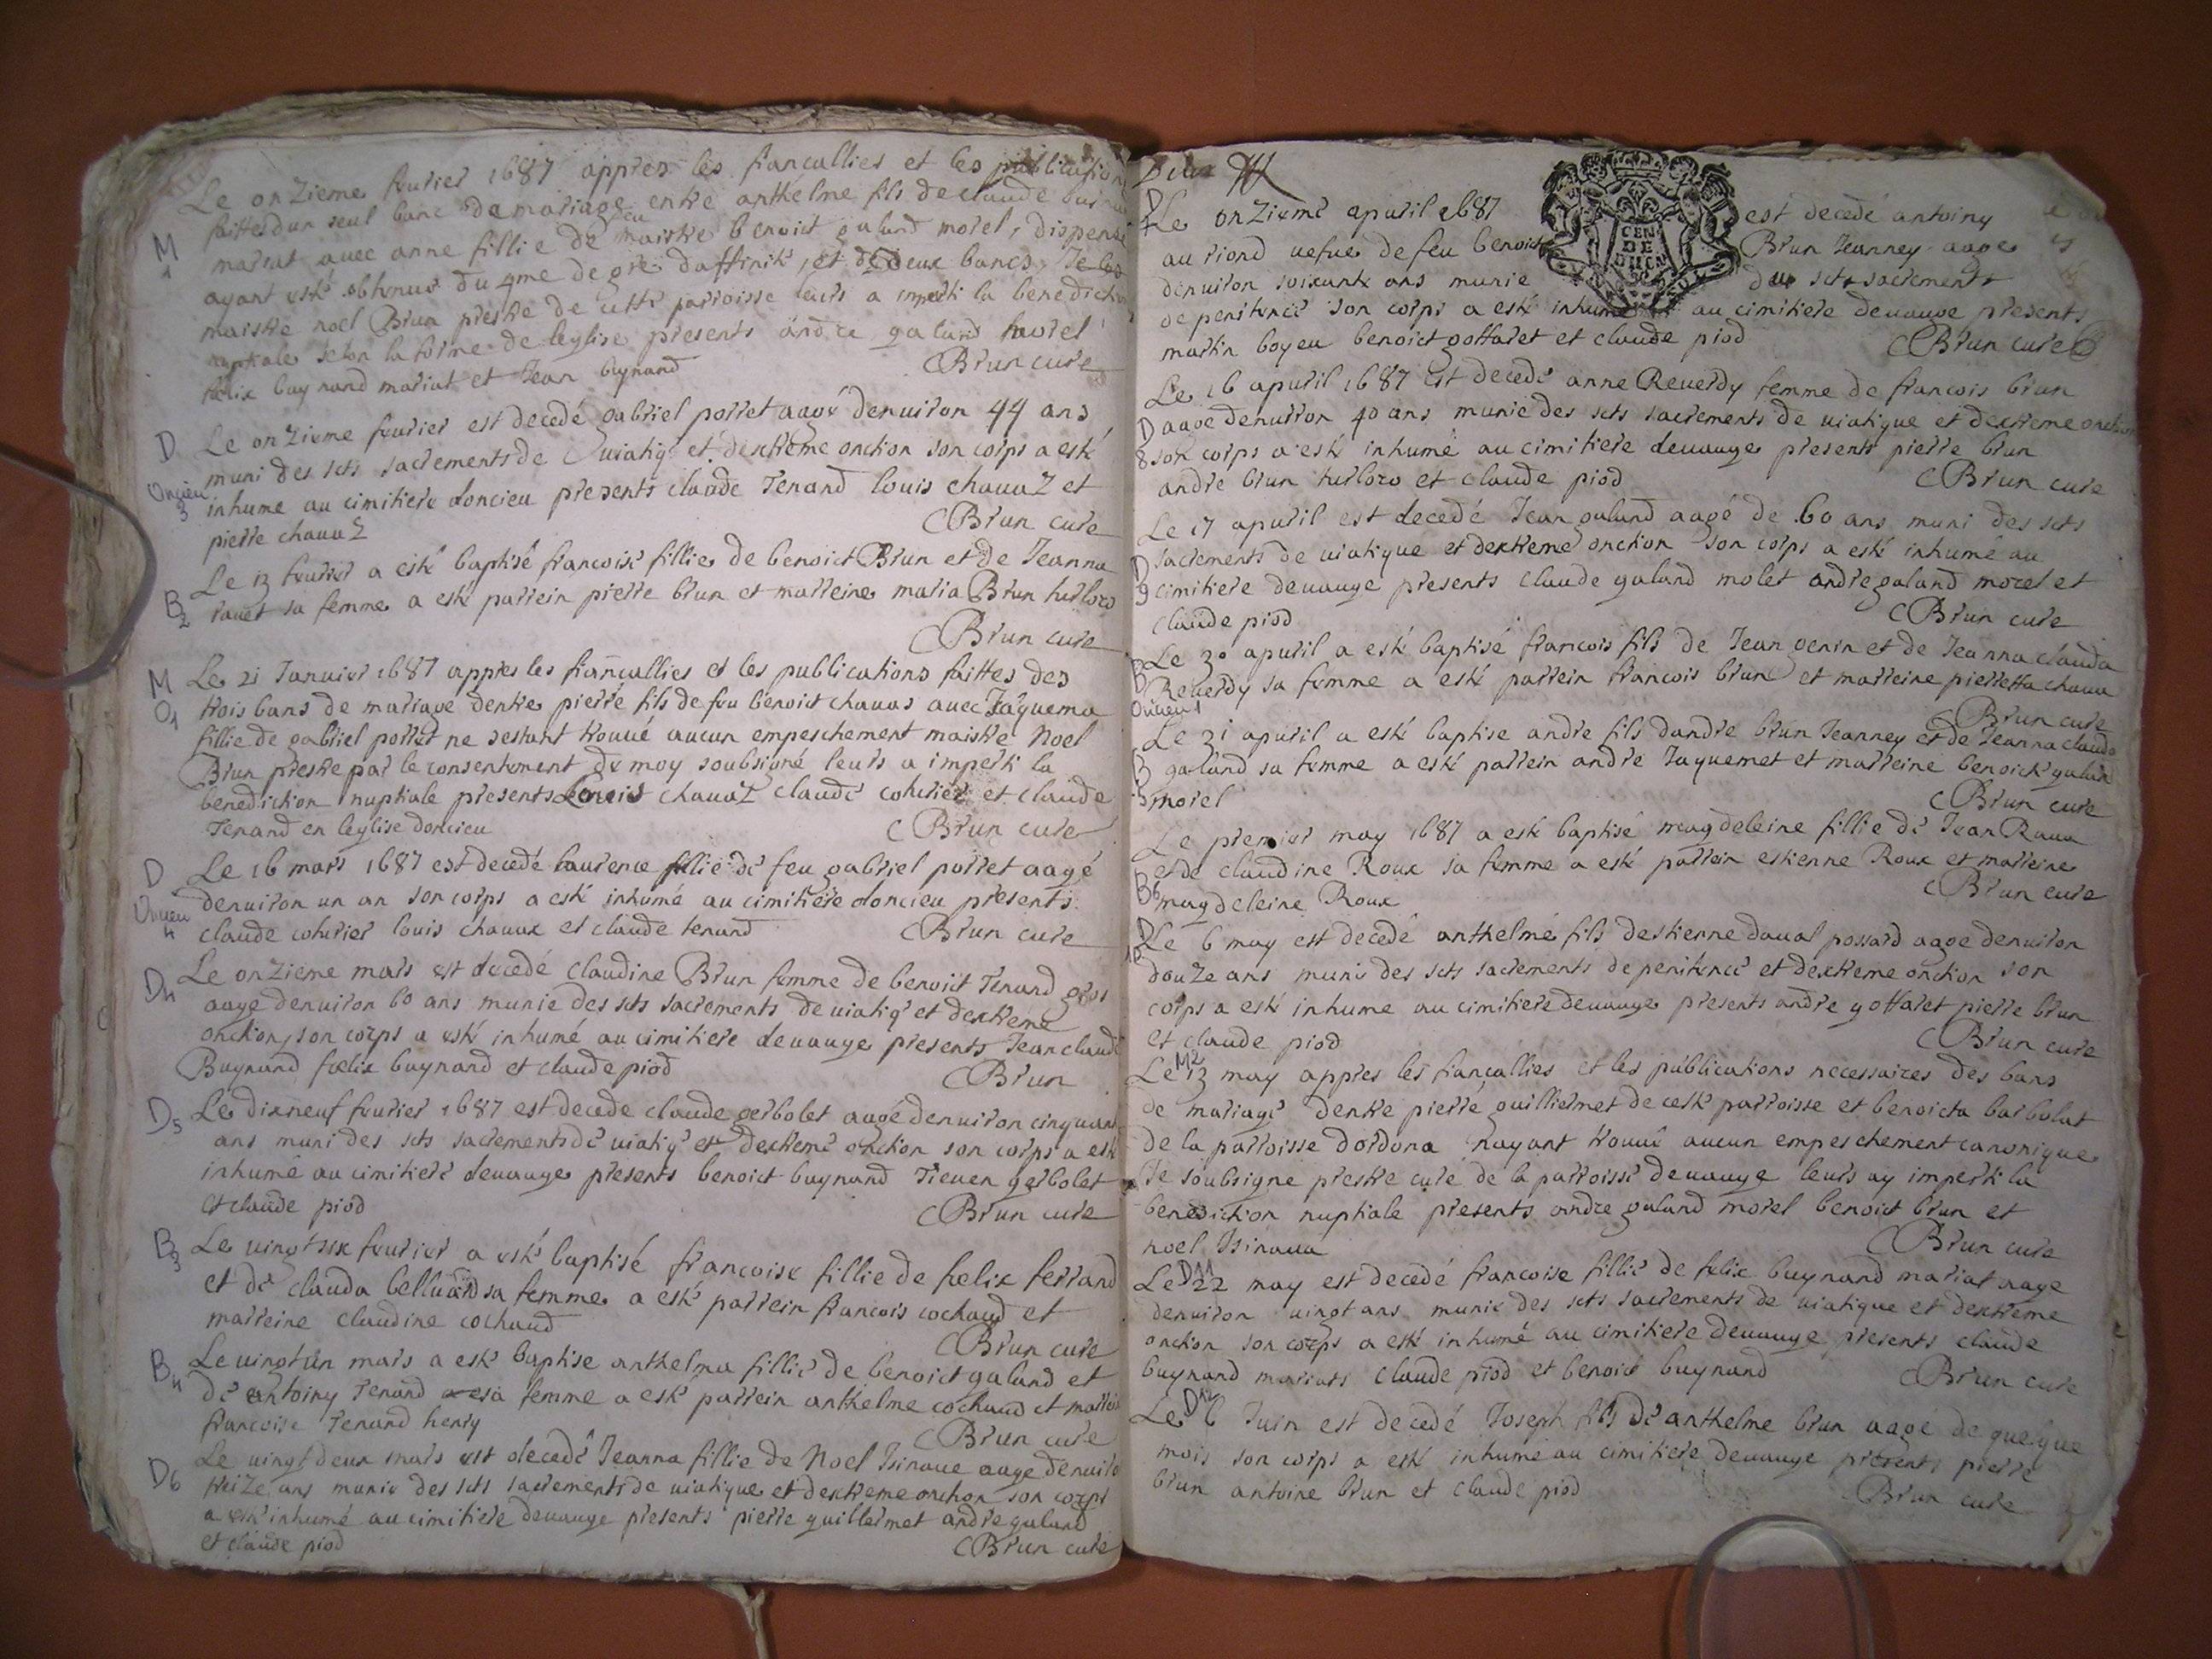 Le onzieme feurier 1687 appres les fiancallies et les publications
faittes dun seul banc de mariage entre anthelme fils de claude
M 1 mariat auec anne fillie de feu maistre benoict galand morel, dispense
ayant esté obtenue du 4me degré daffinité, et de deux bancs,
maistre noel Brun prestre de cette parroisse leurs a imperti la benediction
nuptiale selon la forme de leglise presents andre galand morel
felix buynand mariat et Jean buynand Brun cure
D Le onzieme feurier est decedé gabriel porret aagé denuiron 44 ans
muni des scts sacrements de uiatiq et dextreme onction son corps a esté
Oncieu 3 inhume au cimitiere doncieu presents claude Tenand louis chauaz et
pierre chauaz Brun cure
Le 13 feurier a esté baptisé francoise fillie de benoict Brun et de Jeanna
B 2 rauet sa femme a esté parrein pierre brun et marreine maria Brun
Brun cure
M Le 21 Januier 1687 appres les fiancallies et les publications faittes des
O1 trois bans de mariage dentre pierre fils de feu benoict chauas auec Jaquema
fillie de gabriel porret ne sestant trouué aucun empeschement maistre Noel
Brun prestre par le consentement de moy soubsigné leurs a imperti la
benediction nuptiale presents Louis chauaz claude coherier et claude
Tenand en leglise doncieu Brun cure
D Le 16 mars 1687 est decedé laurence fillie de feu gabriel porret aagé
denuiron un an son corps a esté inhumé au cimitiere doncieu presents
Oncieu 4 claude coherier louis chauax et claude tenand Brun cure
D4 Le onzieme mars est decedé claudine Brun femme de benoict Tenand gros
aage denuiron 60 ans munie des scts sacrements de uiatiq et dextreme
onction, son corps a esté inhumé au cimitiere deuauge presents Jean claude
Buynand foelix buynand et claude piod Brun
D5 Le dixneuf feurier 1687 est decede claude gerbolet aagé denuiron cinquante
ans muni des scts sacrements de uiatiq et dextreme onction son corps a esté
inhumé au cimitiere deuauge presents benoict buynand gerbolet
et claude piod Brun cure
B3 Le uingtsix feurier a esté baptisé francoise fillie de foelix ferrand
et de clauda belluard sa femme a esté parrein francois cochaud et
marreine claudine cochaud Brun cure
B4 Le uingtun mars a esté baptise anthelma fillie de benoict galand et
de antoiny Tenand sa femme a esté parrein anthelme cochaud et marreine
francoise Tenand henry Brun cure
Le uingtdeux mars est decedé Jeanna fillie de Noel Tsinaue aage denuiron
D6 treize ans munie des scts sacrements de uiatique et dextreme onction son corps
a esté inhumé au cimitiere deuauge presents pierre guillermet andre galand
et claude piod Brun cure
D7 Le onzieme apuril 1687 est decedé antoiny
auriond uefue de feu benoict Brun Jeanney aage
denuiron soixante ans munie des scts sacrements
de penitence son corps a esté inhumé au cimitiere deuauge presents
martin boyeu benoict goffaret et claude piod Brun cure
GEN DE DUCN
Le 16 apuril 1687 est decedé anne Reuerdy femme de francois brun
D aage denuiron 40 ans munie des scts sacrements de uiatique et dextreme onction
8 son corps a esté inhumé au cimitiere deuauge presents pierre brun
andre brun et claude piod Brun cure
Le 17 apuril est decedé Jean galand aagé de 60 ans muni des scts
D sacrements de uiatique et dextreme onction son corps a esté inhumé au
9 cimitiere deuauge presents claude galand molet andre galand morel et
claude piod Brun cure
B Le 30 apuril a esté baptisé francois fils de Jean genin et de Jeanna clauda
Reuerdy sa femme a esté parrein francois brun et marreine pierretta chaua
Oncieu 1 Brun cure
Le 21 apuril a esté baptise andre fils dandre brun Jeanney et de Jeanna clauda
B galand sa femme a esté parrein andre Jaquemet et marreine benoict galand
5 morel Brun cure
Le premier may 1687 a esté baptisé magdeleine fillie de Jean Raua
et de claudine Roux sa femme a esté parrein estienne Roux et marreine
B6 magdeleine Roux Brun cure
D10 Le 6 may est decedé anthelme fils destienne doual possard aage denuiron
douze ans muni des scts sacrements de penitence et dextreme onction son
corps a esté inhume au cimitiere deuauge presents andre goffaret pierre brun
et claude piod Brun cure
M2 Le 13 may appres les fiancallies et les publications necessaires des bans
de mariage dentre pierre guilliermet de ceste parroisse et benoicta barbolat
de la parroisse dordona nayant trouué aucun empeschement canonique
Je soubsigne prestre curé de la parroisse deuauge leurs ay imperti la
benediction nuptiale presents andre galand morel benoict brun et
noel Tsinaua Brun cure
D11 Le 22 may est decedé francoise fillie de felix buynand mariat aage
denuiron uingt ans munie des scts sacrements de uiatique et dextreme
onction son corps a esté inhumé au cimitiere deuauge, presents claude
buynand mariats claude piod et benoict buynand Brun cure
D12 Le 6 Juin est decedé Joseph fils de anthelme brun aagé de quelque
mois son corps a esté inhumé au cimitiere deuauge presents pierre
brun antoine brun et claude piod Brun cure